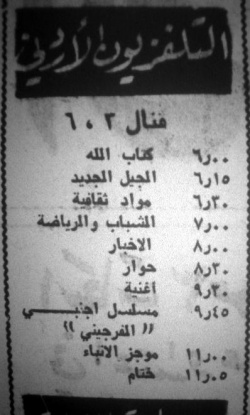 التلفزيون الأردني
قنال ٣ ، ٦
٦٫٠٠ كتاب الله
٦٫١٥ الجيل الجديد
٦٫٣٠ مواد ثقافية
٧٫٠٠ الشباب والرياضة
٨٫٠٠ الاخبار
٨٫٣٠ حوار
٩٫٣٠ أغنية
٩٫٤٥ مسلسل اجنبي
" الفرجيني "
١١٫٠٠ موجز الانباء
١١٫٠٥ ختام